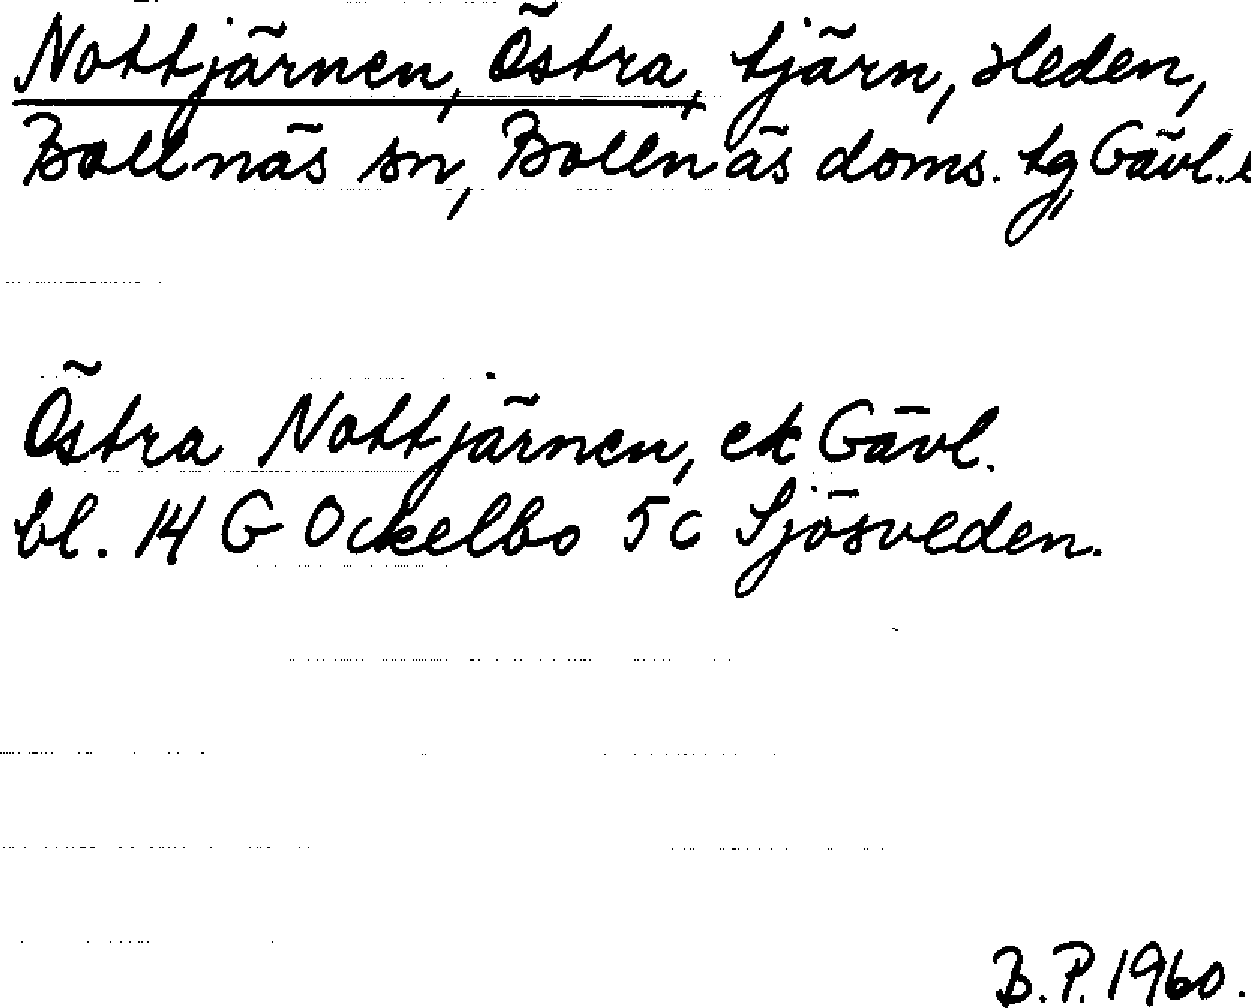 Nottjärnen, Östra, tjärn, Heden,
Bollnäs sn, Bollnäs doms. tg, Gävl. l
Östra Nottjärnen, ek Gävl.
bl. 14 G Ockelbo 5c Sjösveden.
B.P. 1960.